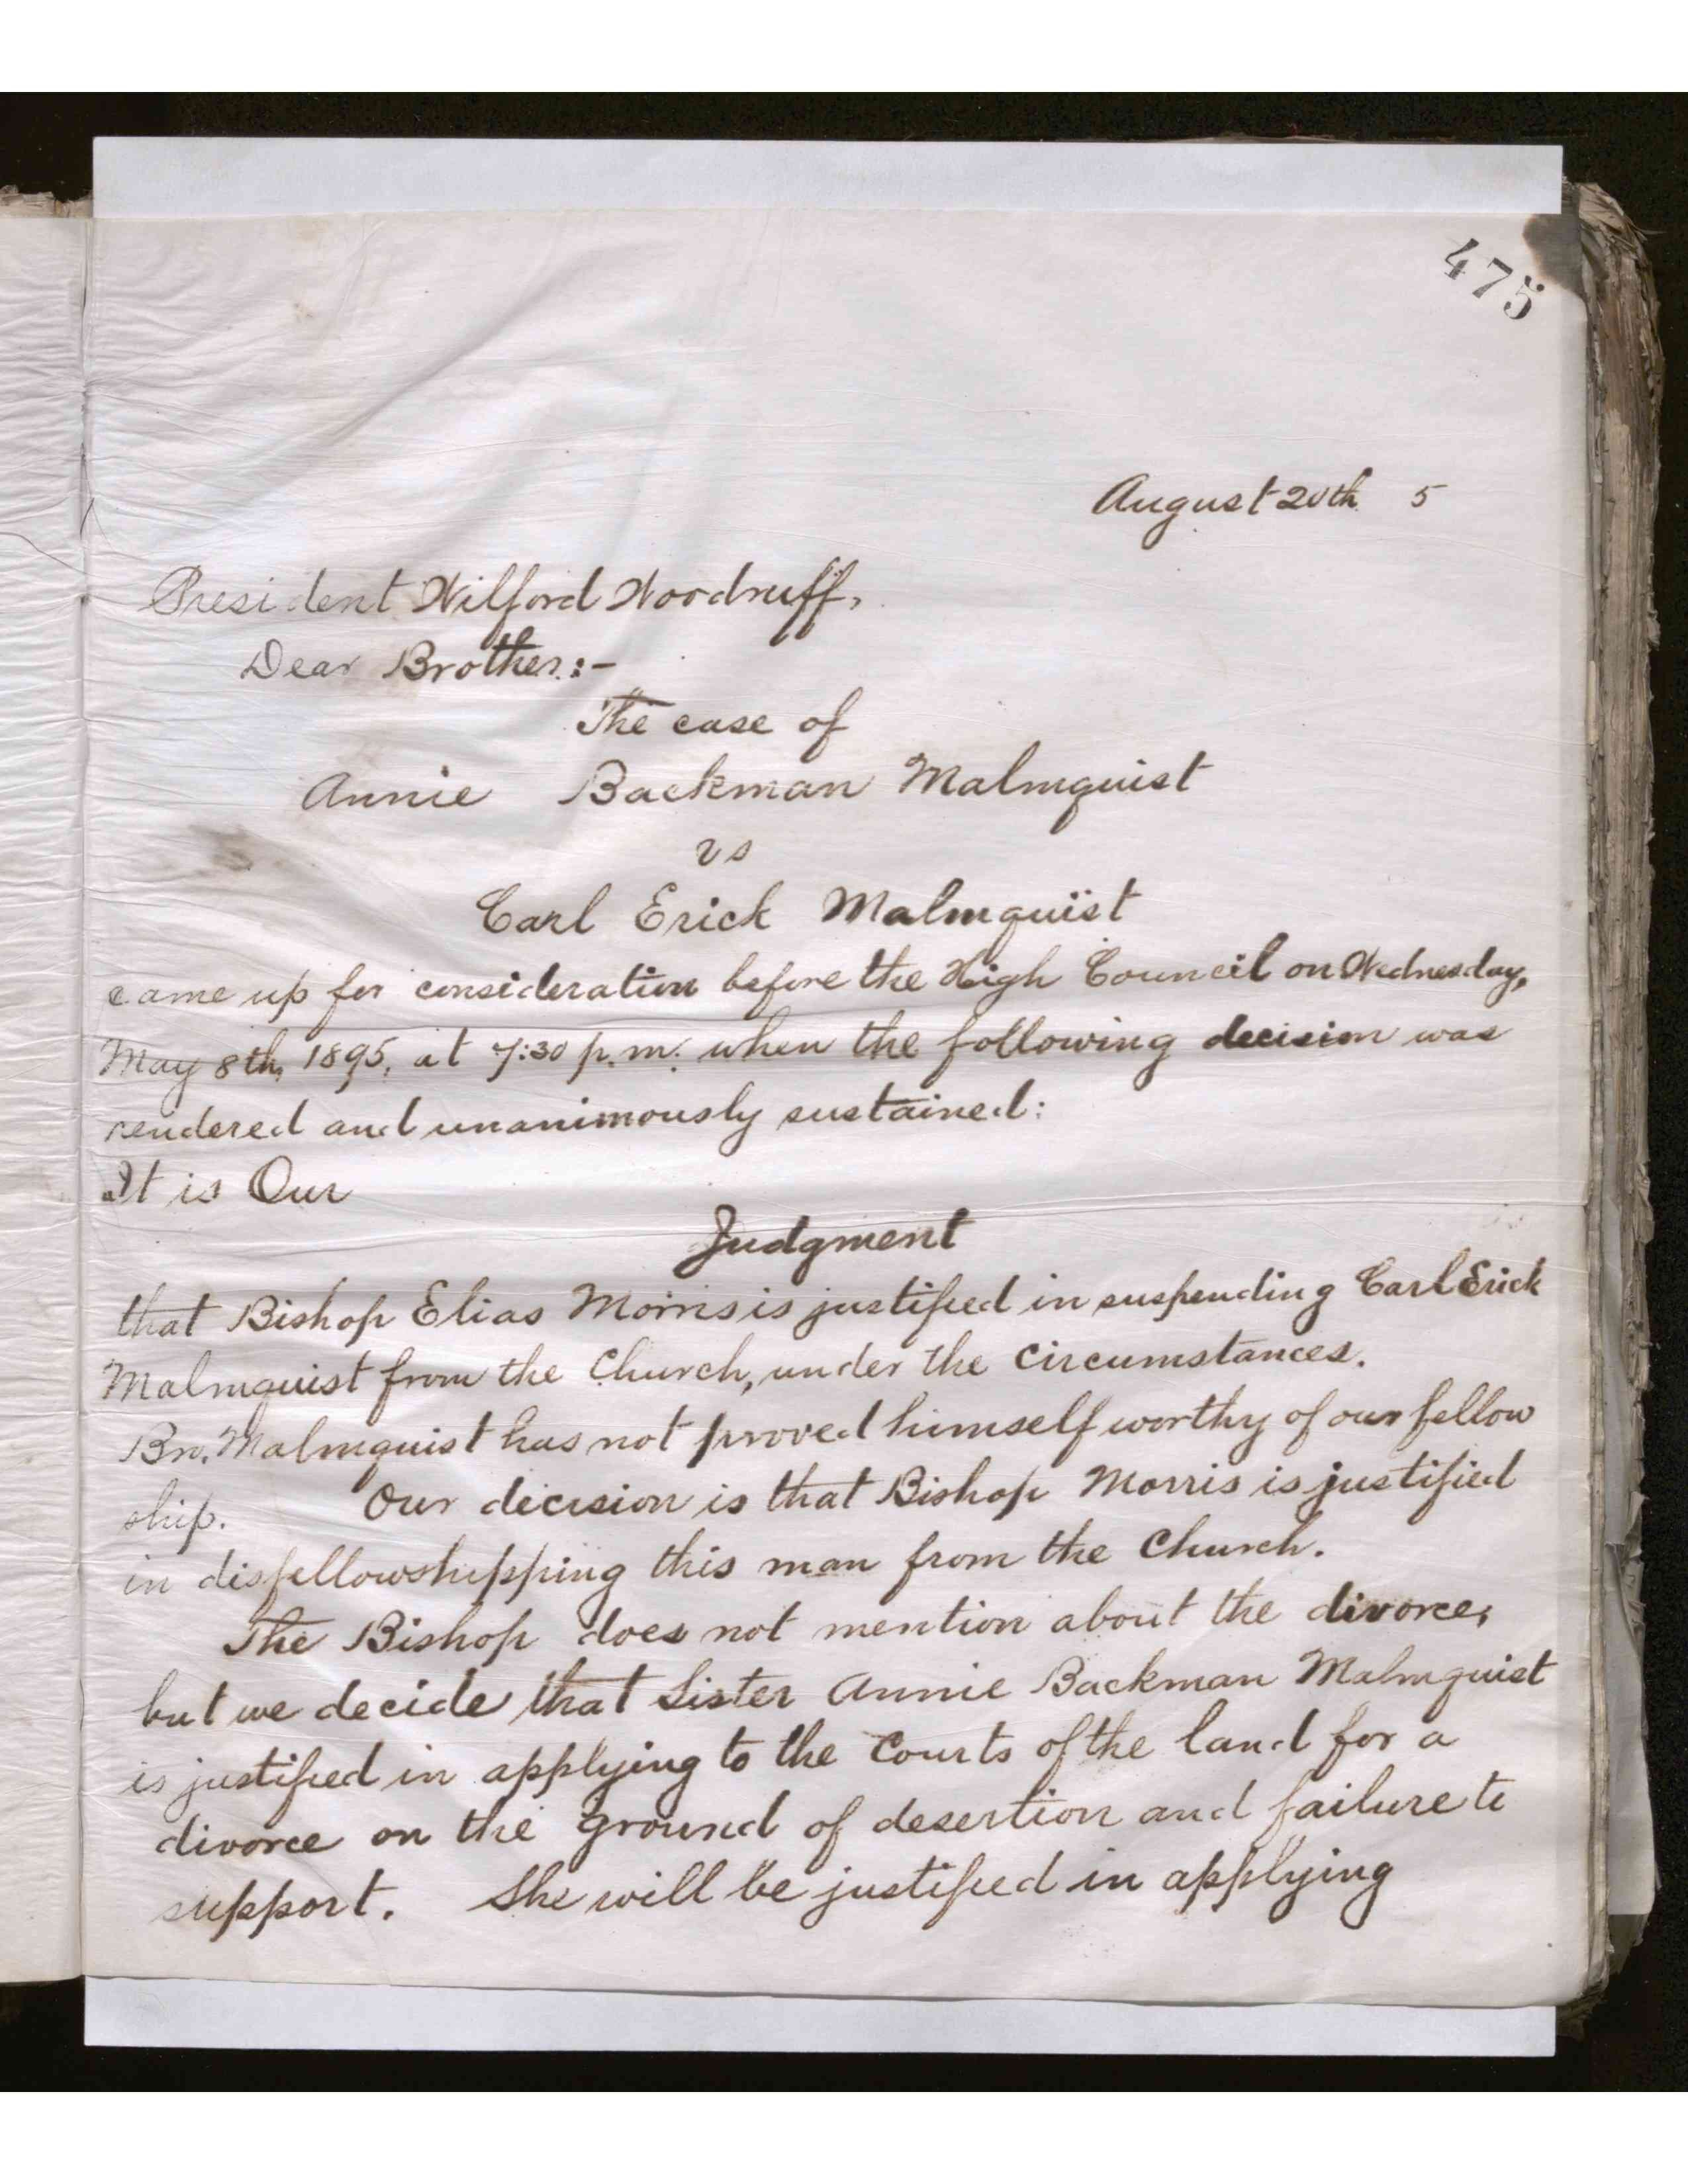 475
August 20th 5
President Wilford Woodruff,
Dear Brother:-
The case of
Annie Backman Malmquist
vs
Carl Erick Malmquist
came up for consideration before the High Council on Wednesday,
May 8th, 1895, at 7:30 p.m. when the following decision was
rendered and unanimously sustained:
It is Our
Judgment
that Bishop Elias Morris is justified in suspending Carl Erick
Malmquist from the Church, under the circumstances.
Bro. Malmquist has not proved himself worthy of our fellow
ship. Our decision is that Bishop Morris is justified
in disfellowshipping this man from the Church.
The Bishop does not mention about the divorce,
but we decide that Sister Annie Backman Malmquist
is justified in applying to the Courts of the land for a
divorce on the ground of desertion and failure to
support. She will be justified in applying